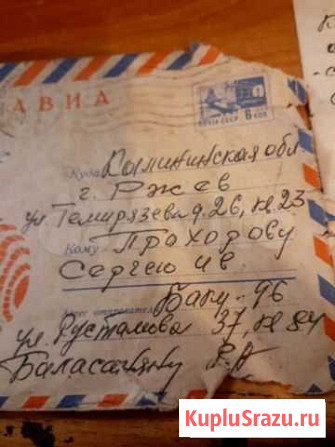 АВИА
ПОЧТА СССР 6 КОП
Куда Калининская обл
г. Ржев
ул Темирязева д. 26, кв. 23
Кому Прохорову
Сергею Ив.
Адрес отправителя Баку-96
ул. Рустамова 37, кв 84
Баласаняну Р.А
KupluSrazu.ru